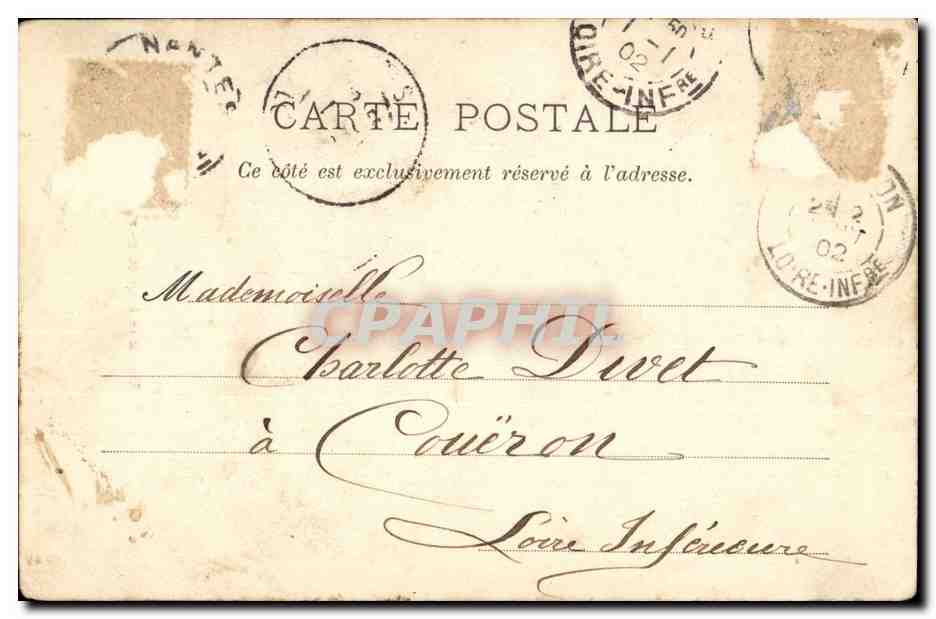 NANTES
50
02
LOIRE-INFRE
CARTE POSTALE
Ce côté est exclusivement réservé à l'adresse.
02
LOIRE-INFRE
Mademoiselle
CPAPHIL
Charlotte Divet
à Couëron
Loire Inférieure